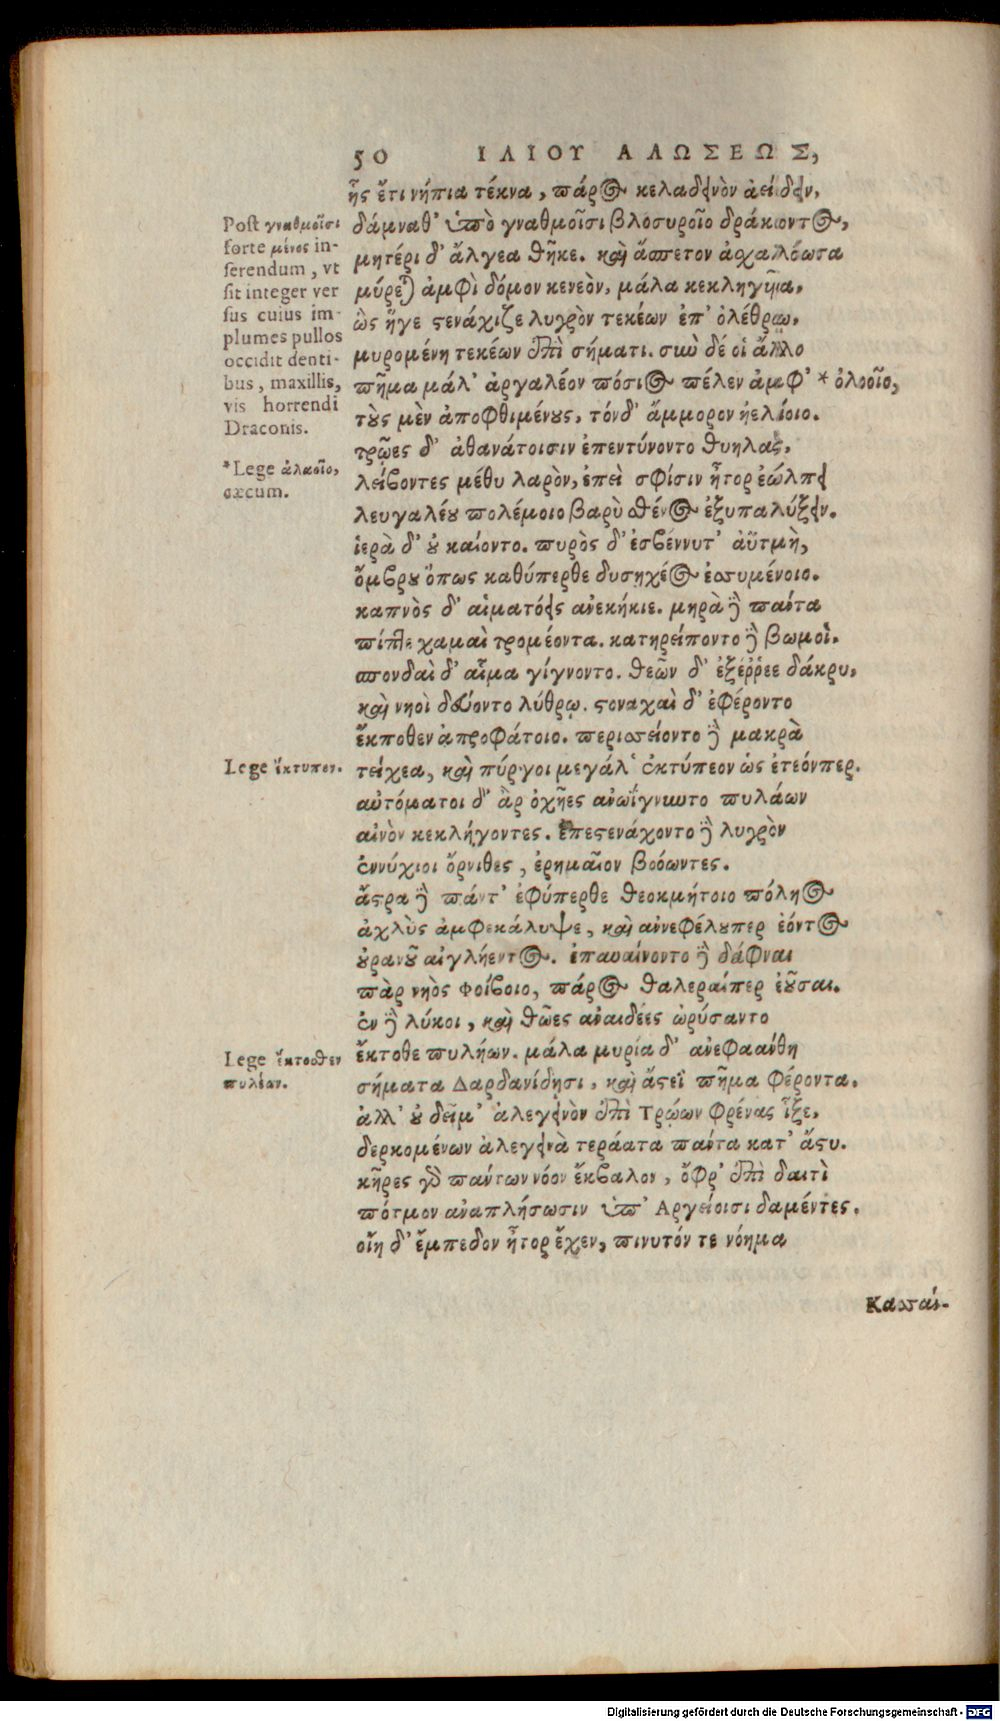 50 ΙΛΙΟΥ ΑΛΩΣΕΩΣ,
ἧς ἔτι νήπια τέκνα, πάρος κελαδεινὸν ἀείδειν,
δάμναθ' ὑπὸ γναθμοῖσι βλοσυροῖο δράκοντος,
μητέρι δ' ἄλγεα θῆκε. καὶ ἄσπετον ἀσχαλόωσα
μύρεται ἀμφὶ δόμον κενεὸν, μάλα κεκληγῦια,
ὣς ἥγε στενάχιζε λυγρὸν τεκέων ἐπ' ὀλέθρῳ,
μυρομένη τεκέων ἐπὶ σήματι. σὺν δέ οἱ ἄλλο
πῆμα μάλ' ἀργαλέον πόσιος πέλεν ἀμφ' * ὀλοοῖο,
τοὺς μὲν ἀποφθιμένους, τόνδ' ἄμμορον ἠελίοιο.
τρῶες δ' ἀθανάτοισιν ἐπεντύνοντο θυηλας,
λείβοντες μέθυ λαρὸν, ἐπεὶ σφίσιν ἦτορ ἐώλπει
λευγαλέου πολέμοιο βαρὺ σθένος ἐξυπαλύξειν.
ἱερὰ δ' οὐ καίοντο. πυρὸς δ' ἐσβέννυτ' αὖτμὴ,
ὄμβρου ὅπως καθύπερθε δυσηχέος ἐσσυμένοιο.
καπνὸς δ' αἱματόεις ἀνεκήκιε. μηρὰ δὲ πάντα
πίπτε χαμαὶ τρομέοντα. κατηρείποντο δὲ βωμοὶ.
σπονδαὶ δ' αἷμα γίγνοντο. θεῶν δ' ἐξέῤῥεε δάκρυ,
καὶ νηοὶ δεύοντο λύθρῳ. στοναχαὶ δ' ἐφέροντο
ἔκποθεν ἀπροφάτοιο. περισείοντο δὲ μακρὰ
τείχεα, καὶ πύργοι μεγάλ' ἐκτύπεον ὡς ἐτεόνπερ.
αὐτόματοι δ' ἂρ ὀχῆες ἀνωΐγνυντο πυλάων
αἰνὸν κεκλήγοντες. ἐπεστενάχοντο δὲ λυγρὸν
ἐννύχιοι ὄρνιθες, ἐρημαῖον βοόωντες.
ἄστρα δὲ πάντ' ἐφύπερθε θεοκμήτοιο πόληος
ἀχλὺς ἀμφεκάλυψε, καὶ ἀννεφέλουπερ ἐόντος
οὐρανοῦ αἰγλήεντος. ἐπαυαίνοντο δὲ δάφναι
πὰρ νηὸς Φοίβοιο, πάρος θαλεραίπερ ἐοῦσαι.
ἐν δὲ λύκοι, καὶ θῶες ἀναιδέες ὠρύσαντο
ἔκτοθε πυλήων. μάλα μυρία δ' ἀνεφαάνθη
σήματα Δαρδανίδῃσι, καὶ ἄστεϊ πῆμα φέροντα.
ἀλλ' οὐ δεῖμ' ἀλεγεινὸν ἐπὶ Τρώων φρένας ἷξε,
δερκομένων ἀλεγεινὰ τεράατα πάντα κατ' ἄστυ.
κῆρες γὰρ πάντων νόον ἔκβαλον, ὄφρ' ἐπὶ δαιτὶ
πότμον ἀναπλήσωσιν ὑπ' Ἀργείοισι δαμέντες.
οἴη δ' ἔμπεδον ἦτορ ἔχεν, πινυτόν τε νόημα
Κασσάν-
Post γναθμοῖσι
forte μένος in-
serendum, vt
sit integer ver
sus cuius im-
plumes pullos
occidit denti-
bus, maxillis,
vis horrendi
Draconis.
*Lege ἀλαοῖο,
cæcum.
Lege ἔκτυπεν.
Lege ἔκτοσθεν
πυλέων.
Digitalisierung gefördert durch die Deutsche Forschungsgemeinschaft - DFG